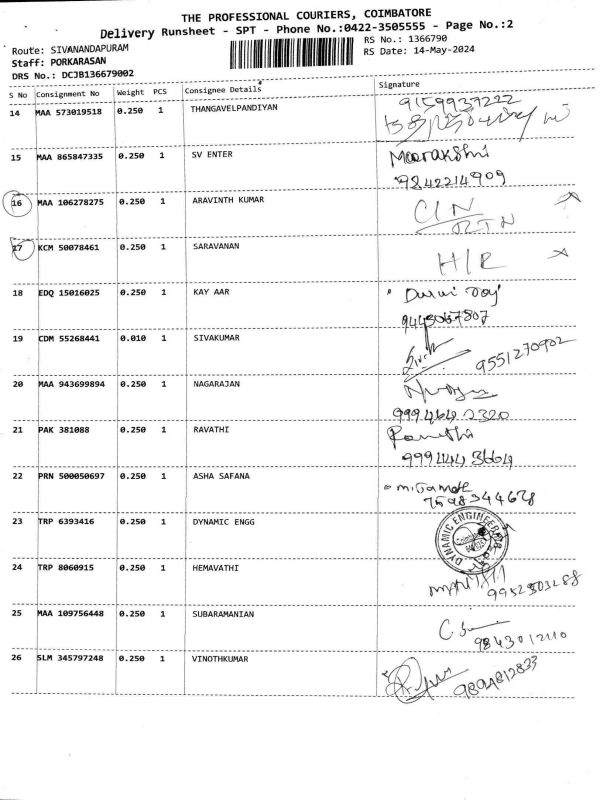 THE PROFESSIONAL COURIERS, COIMBATORE
Delivery Runsheet - SPT - Phone No.:0422-3505555 - Page No.:2
Route: SIVANANDAPURAM
RS No.: 1366790
Staff: PORKARASAN
RS Date: 14-May-2024
DRS No.: DCJB136679002
S No Consignment No Weight PCS Consignee Details Signature
14 MAA 573019518 0.250 1 THANGAVELPANDIYAN
9159937222
15 MAA 865847335 0.250 1 SV ENTER
Meenakshi
9842214909
16 MAA 106278275 0.250 1 ARAVINTH KUMAR
CIN
RTN
17 KCM 50078461 0.250 1 SARAVANAN
H/R
18 EDQ 15016025 0.250 1 KAY AAR
9443067507
19 CDM 55268441 0.010 1 SIVAKUMAR
9551270902
20 MAA 943699894 0.250 1 NAGARAJAN
9994642320
21 PAK 381088 0.250 1 RAVATHI
9994443664
22 PRN 500050697 0.250 1 ASHA SAFANA
7598344678
23 TRP 6393416 0.250 1 DYNAMIC ENGG
DYNAMIC ENGINEER
24 TRP 8060915 0.250 1 HEMAVATHI
25 MAA 109756448 0.250 1 SUBARAMANIAN
9843012110
26 SLM 345797248 0.250 1 VINOTHKUMAR
9894812833